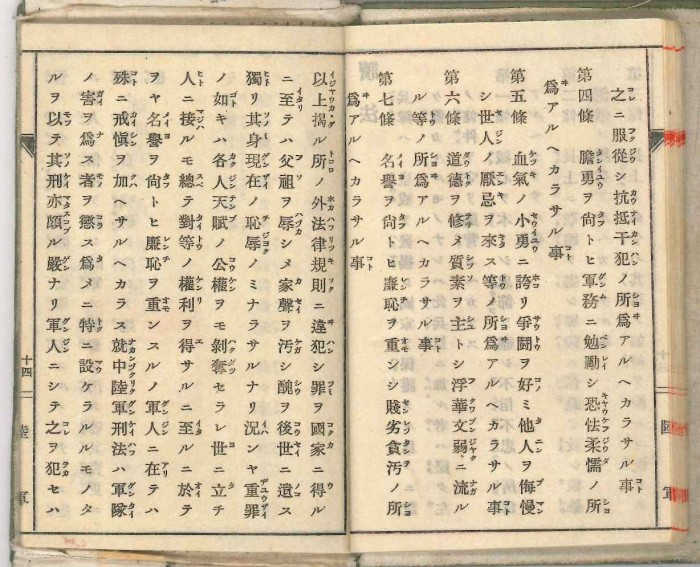 之ニ服從シ抗抵干犯ノ所爲アルヘカラサル事
第四條　膽勇ヲ尚トヒ軍務ニ勉勵シ恐怯柔懦ノ所
爲アルヘカラサル事
第五條　血氣ノ小勇ニ誇リ爭鬪ヲ好ミ他人ヲ侮慢
シ世人ノ厭忌ヲ來ス等ノ所爲アルヘカラサル事
第六條　道德ヲ修メ質素ヲ主トシ浮華文弱ニ流ル
ル等ノ所爲アルヘカラサル事
第七條　名譽ヲ尚トヒ廉恥ヲ重シシ賤劣貪汚ノ所
爲アルヘカラサル事
陸軍
以上揭ル所ノ外法律規則ニ違犯シ罪ヲ國家ニ得ル
ニ至テハ父祖ヲ辱シメ家聲ヲ汚シ醜ヲ後世ニ遺ス
獨リ其身現在ノ恥辱ノミナラサルナリ況シヤ重罪
ノ如キハ各人天賦ノ公權ヲモ剝奪セラレ世ニ立チ
人ニ接ルモ總テ對等ノ權利ヲ得サルニ至ル於テ
ヲヤ名譽ヲ尚トヒ廉恥ヲ重ンスルノ軍人ニ在テハ
殊ニ戒愼ヲ加ヘサルヘカラス就中陸軍刑法ハ軍隊
ノ害ヲ爲ス者ヲ懲ス爲メニ特ニ設ケラルルモノタ
ルヲ以テ其刑亦頗ル嚴ナリ軍人ニシテ之ヲ犯セハ
十四
陸軍